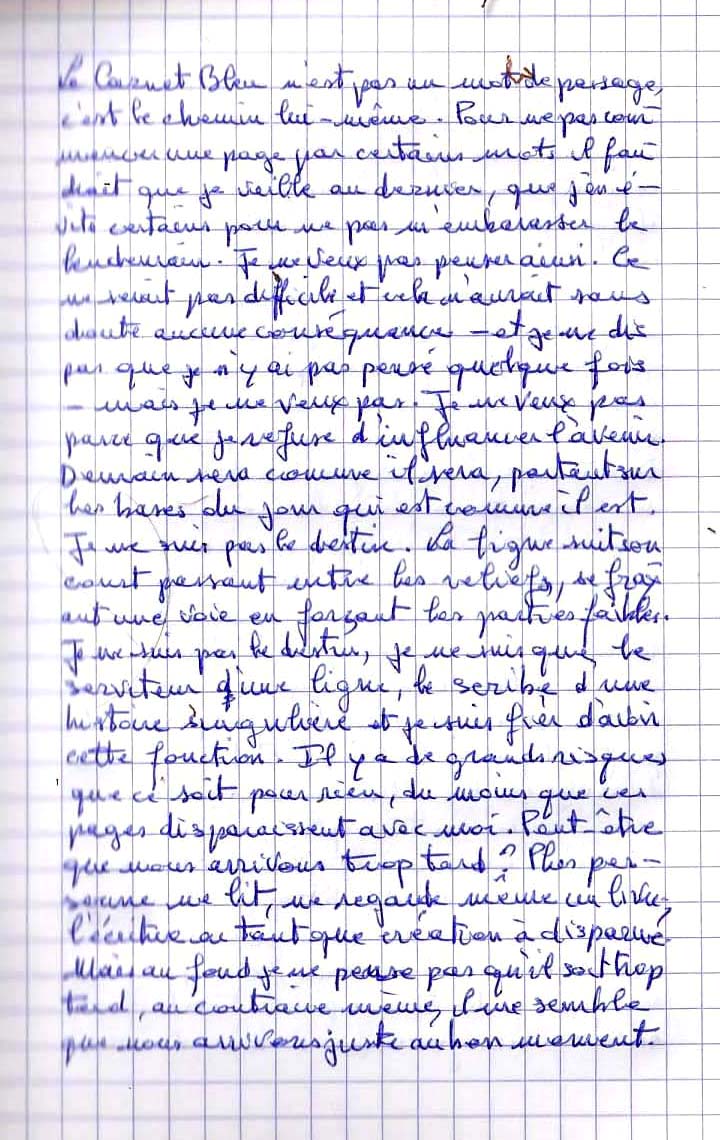 Le Carnet Bleu n'est pas un mot de passage,
c'est le chemin lui-même. Pour ne pas com
mencer une page par certains mots il fau
drait que je veille au dernier, que j'en é-
vite certains pour ne pas m'embarasser le
lendemain. Je ne veux pas penser ainsi. Ce
ne serait pas difficile et cela n'aurait sans
doute aucune conséquence - et je ne dis
pas que je n'y ai pas pensé quelque fois
- mais je ne veux pas. Je ne veux pas
parce que je refuse d'influencer l'avenir.
Demain sera comme il sera, partant sur
les bases du jour qui est comme il est.
Je ne suis pas le destin. La ligne suit son
court passant entre les reliefs, se fray
ant une voie en forçant les parties faibles.
Je ne suis pas le destin, je ne suis que le
serviteur d'une ligne, le scribe d'une
histoire singulière et je suis fier d'avoir
cette fonction. Il y a de grands risques
que ce soit pour rien, du moins que ces
pages disparaissent avec moi. Peut-être
que nous arrivons trop tard ? Plus per-
sonne ne lit, ne regarde même un livre,
l'écriture en tant que création à disparue.
Mais au fond je ne pense pas qu'il soit trop
tard, au contraire même, il me semble
que nous arrivons juste au bon moment.